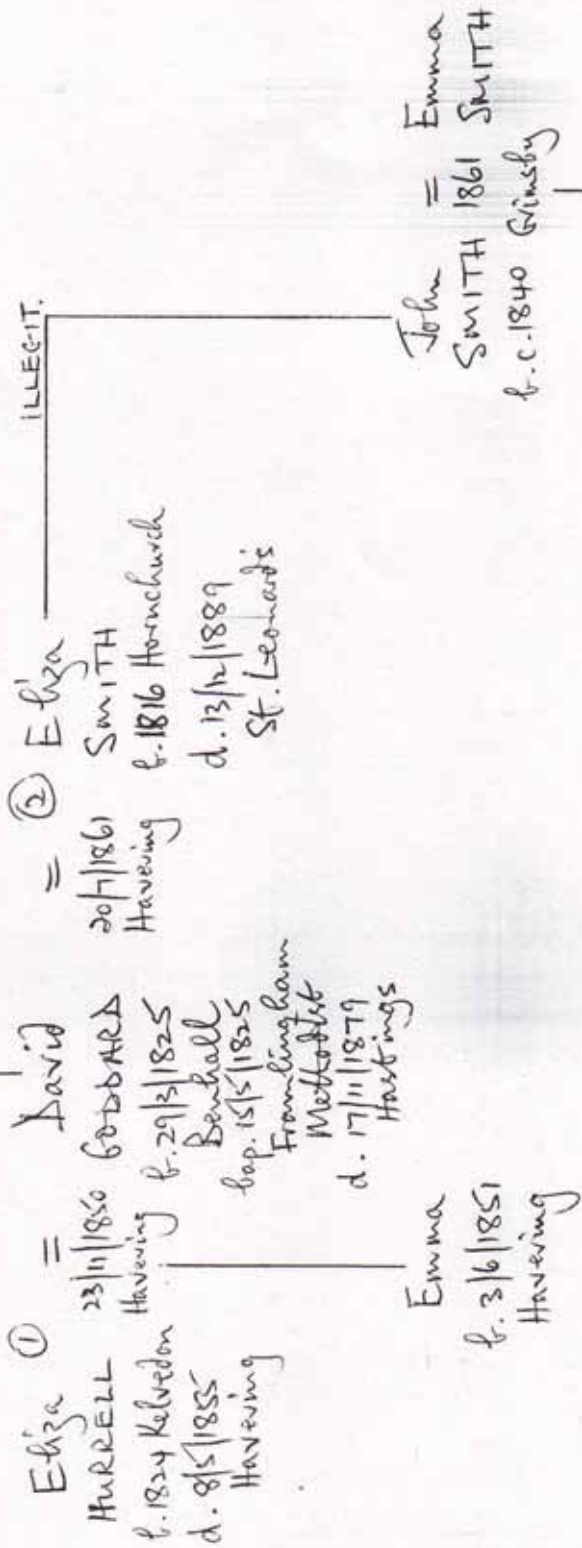 Eliza ①
HURRELL
b. 1824 Kelvedon
d. 8/5/1855
Havering
=
23/11/1850
Havering
David
GODDARD
b. 29/3/1825
Benhall
bap. 15/5/1825
Framlingham
Methodist
d. 17/11/1879
Hastings
=
20/7/1861
Havering
② Eliza
SMITH
b. 1816 Hornchurch
d. 13/12/1889
St. Leonard's
ILLEGIT.
Emma
b. 3/6/1851
Havering
John = Emma
SMITH 1861 SMITH
b.c. 1840 Grimsby